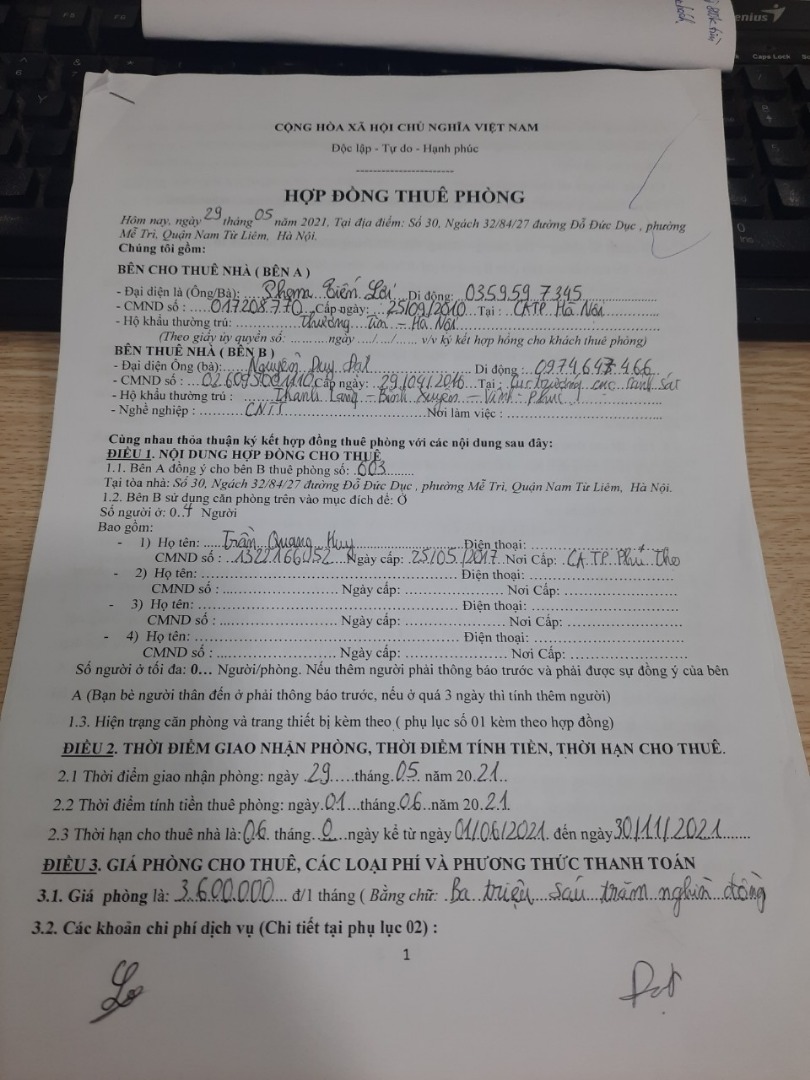 enius
Caps Lock
CỘNG HÒA XÃ HỘI CHỦ NGHĨA VIỆT NAM
Độc lập - Tự do - Hạnh phúc
------------------------
HỢP ĐỒNG THUÊ PHÒNG
Hôm nay, ngày 29 tháng 05 năm 2021, Tại địa điểm: Số 30, Ngách 32/84/27 đường Đỗ Đức Dục , phường
Mễ Trì, Quận Nam Từ Liêm, Hà Nội.
Chúng tôi gồm:
BÊN CHO THUÊ NHÀ ( BÊN A )
- Đại diện là (Ông/Bà): ... Tiến Lợi Di động: 035959 7345
- CMND số : 017208770 Cấp ngày: 25/09/2010 Tại : CATP. Hà Nội
- Hộ khẩu thường trú: Thường Tín - Hà Nội
(Theo giấy ủy quyền số: ..........ngày ..../..../..... v/v ký kết hợp hồng cho khách thuê phòng)
BÊN THUÊ NHÀ ( BÊN B )
- Đại diện Ông (bà): Nguyễn Duy Đạt Di động : 0974647466
- CMND số : Cấp ngày: 29/04/2016 Tại : Cục trưởng cục cảnh sát
- Hộ khẩu thường trú : Thanh Lãng - Bình Xuyên - Vĩnh Phúc
- Nghề nghiệp : CNTT Nơi làm việc :
Cùng nhau thỏa thuận ký kết hợp đồng thuê phòng với các nội dung sau đây:
ĐIỀU 1. NỘI DUNG HỢP ĐỒNG CHO THUÊ
1.1. Bên A đồng ý cho bên B thuê phòng số: 003
Tại tòa nhà: Số 30, Ngách 32/84/27 đường Đỗ Đức Dục , phường Mễ Trì, Quận Nam Từ Liêm, Hà Nội.
1.2. Bên B sử dụng căn phòng trên vào mục đích để: Ở
Số người ở: 0.. Người
Bao gồm:
- 1) Họ tên: Trần Quang Huy Điện thoại:
CMND số : Ngày cấp: 25/05/2017 Nơi Cấp: CA.TP. Phú Thọ
- 2) Họ tên: Điện thoại:
CMND số : Ngày cấp: Nơi Cấp:
- 3) Họ tên: Điện thoại:
CMND số : Ngày cấp: Nơi Cấp:
- 4) Họ tên: Điện thoại:
CMND số : Ngày cấp: Nơi Cấp:
Số người ở tối đa: 0... Người/phòng. Nếu thêm người phải thông báo trước và phải được sự đồng ý của bên
A (Bạn bè người thân đến ở phải thông báo trước, nếu ở quá 3 ngày thì tính thêm người)
1.3. Hiện trạng căn phòng và trang thiết bị kèm theo ( phụ lục số 01 kèm theo hợp đồng)
ĐIỀU 2. THỜI ĐIỂM GIAO NHẬN PHÒNG, THỜI ĐIỂM TÍNH TIỀN, THỜI HẠN CHO THUÊ.
2.1 Thời điểm giao nhận phòng: ngày 29 tháng 05 năm 2021
2.2 Thời điểm tính tiền thuê phòng: ngày 01 tháng 06 năm 2021
2.3 Thời hạn cho thuê nhà là: 06 tháng 0 ngày kể từ ngày 01/06/2021 đến ngày 30/11/2021
ĐIỀU 3. GIÁ PHÒNG CHO THUÊ, CÁC LOẠI PHÍ VÀ PHƯƠNG THỨC THANH TOÁN
3.1. Giá phòng là: 3.600.000 đ/1 tháng ( Bằng chữ: Ba triệu sáu trăm nghìn đồng
3.2. Các khoản chi phí dịch vụ (Chi tiết tại phụ lục 02) :
1
Đạt